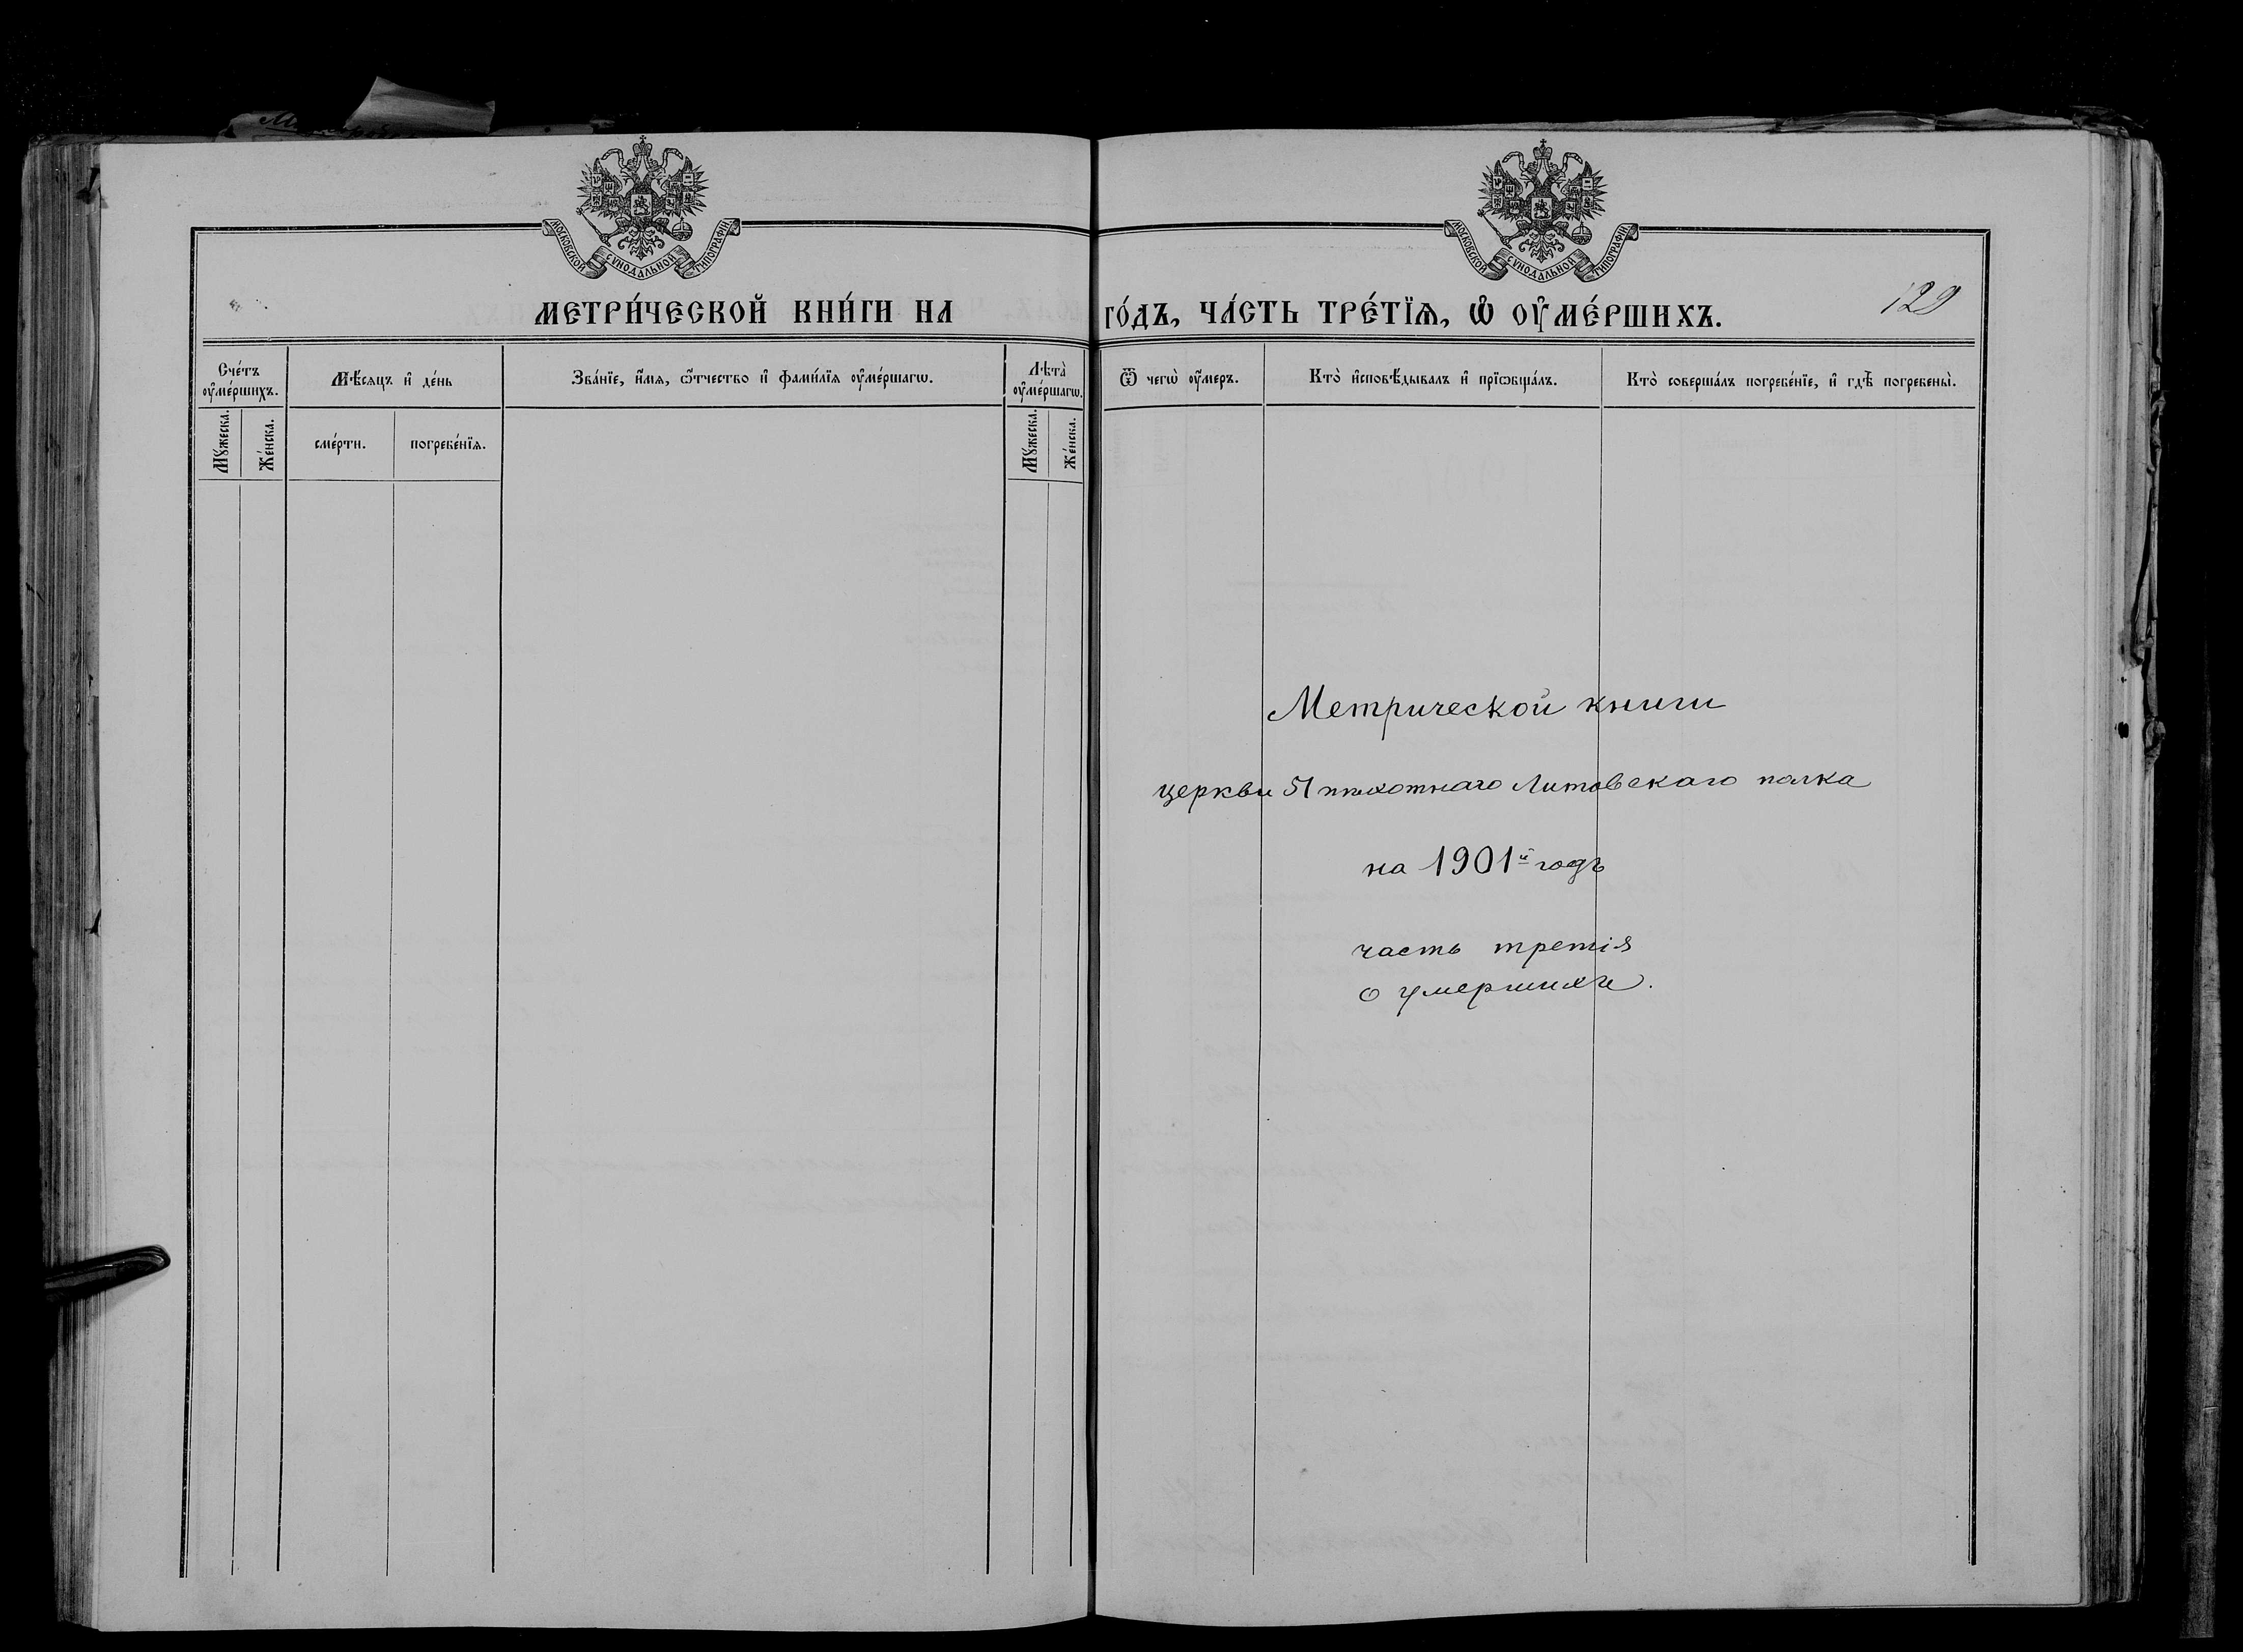 МОСКОВСКОЙ СѴНОДАЛЬНОЙ ТИПОГРАФІИ.
МОСКОВСКОЙ СѴНОДАЛЬНОЙ ТИПОГРАФІИ.
МЕТРИ́ЧЕСКОЙ КНИ́ГИ НА ГО́ДЪ, ЧА́СТЬ ТРЕ́ТЇѦ, Ѽ ОУ҆МЕ́РШИХЪ.
129
Сче́тъ оу҆ме́ршихъ.
Мѣ́сяцъ и҆ де́нь
Зва́нїе, и҆́мѧ, ѻ҆́тчество и҆ фами́лїѧ оу҆ме́ршагѡ.
Лѣта̀ оу҆ме́ршагѡ.
Ѿ чегѡ̀ оу҆́меръ.
Кто̀ и҆сповѣ́дывалъ и҆ прїѡбща́лъ.
Кто̀ соверша́лъ погребе́нїе, и҆ гдѣ̀ погребены̀.
Мꙋ́жеска.
Же́нска.
сме́рти.
погребе́нїѧ.
Мꙋ́жеска.
Же́нска.
Метрической книги
церкви 51 пѣхотнаго Литовскаго полка
на 1901й годъ
часть третія
о умершихъ.